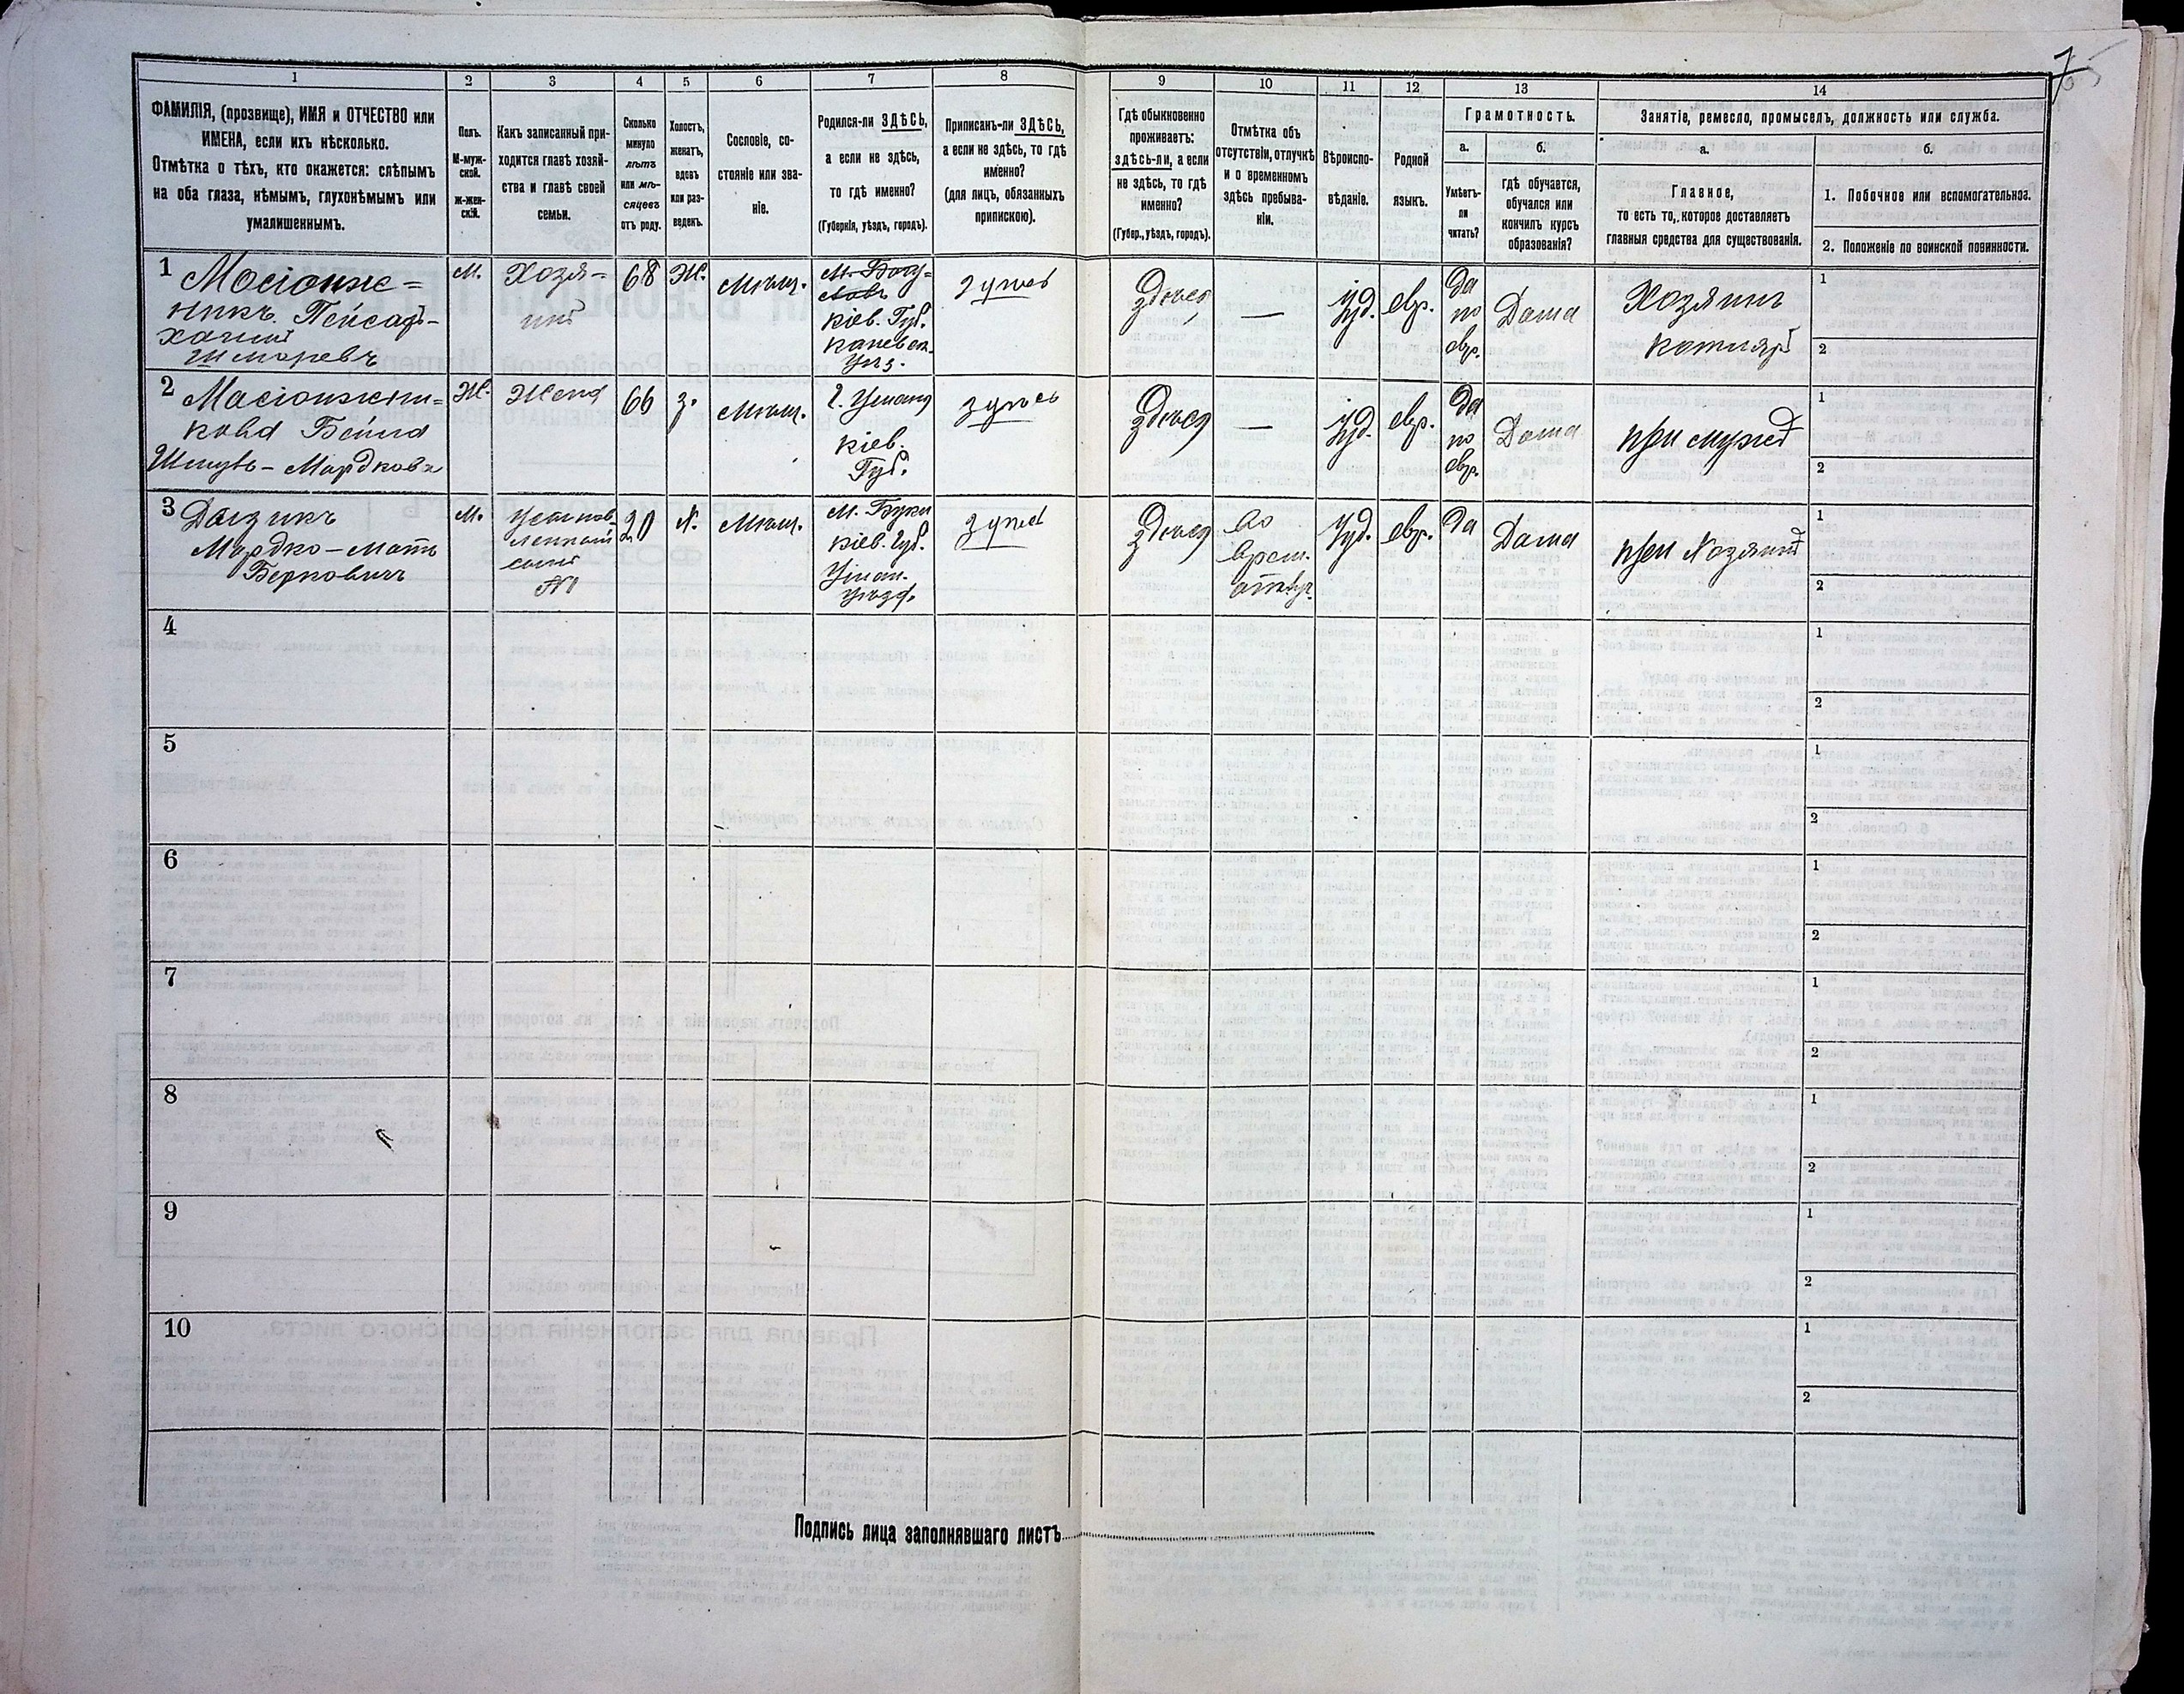 75
1
2
3
4
5
6
7
8
9
10
11
12
13
14
ФАМИЛІЯ, (прозвище), ИМЯ и ОТЧЕСТВО или
ИМЕНА, если ихъ нѣсколько.
Отмѣтка о тѣхъ, кто окажется: слѣпымъ
на оба глаза, нѣмымъ, глухонѣмымъ или
умалишеннымъ.
Полъ.
М-муж-
ской.
Ж-жен-
скій.
Какъ записанный при-
ходится главѣ хозяй-
ства и главѣ своей
семьи.
Сколько
минуло
лѣтъ
или мѣ-
сяцевъ
отъ роду.
Холостъ,
женатъ,
вдовъ
или раз-
веденъ.
Сословіе, со-
стояніе или зва-
ніе.
Родился-ли ЗДѢСЬ,
а если не здѣсь,
то гдѣ именно?
(Губернія, уѣздъ, городъ).
Приписанъ-ли ЗДѢСЬ,
а если не здѣсь, то гдѣ
именно?
(для лицъ, обязанныхъ
припискою).
Гдѣ обыкновенно
проживаетъ:
здѣсь-ли, а если
не здѣсь, то гдѣ
именно?
(Губер., уѣздъ, городъ).
Отмѣтка объ
отсутствіи, отлучкѣ
и о временномъ
здѣсь пребыва-
ніи.
Вѣроиспо-
вѣданіе.
Родной
языкъ.
Грамотность.
а.
Умѣетъ-
ли
читать?
б.
гдѣ обучается,
обучался или
кончилъ курсъ
образованія?
Занятіе, ремесло, промыселъ, должность или служба.
а.
Главное,
то есть то, которое доставляетъ
главныя средства для существованія.
б.
1. Побочное или вспомогательное.
2. Положеніе по воинской повинности.
1
Масіонже-
никъ Пейсах-
Шмаревъ
М.
Хозя-
инъ
68
Ж.
Мѣщ.
м. Богу-
славъ
Кіев. Губ.
Каневск.
Уѣз.
здѣсь
Здѣсь
—
Іуд.
евр.
Да
по
евр.
Дома
Хозяинъ
1
2
2
Масіонжни-
кова Бейла
Мордкова
Ж.
Жена
66
З.
Мѣщ.
г. Умань
Кіев.
Губ.
здѣсь
Здѣсь
—
Іуд.
евр.
Да
по
евр.
Дома
при мужѣ
1
2
3
Мордко-Мот
Берковичъ
М.
Усынов-
ленный
сынъ
№1
20
Х.
Мѣщ.
м. Буки
Кіев. Губ.
Уман.
Уѣзд.
здѣсь
Здѣсь
во
врем.
отлуч.
Іуд.
евр.
Да
Дома
при Хозяинѣ
1
2
4
1
2
5
1
2
6
1
2
7
1
2
8
1
2
9
1
2
10
1
2
Подпись лица заполнявшаго листъ